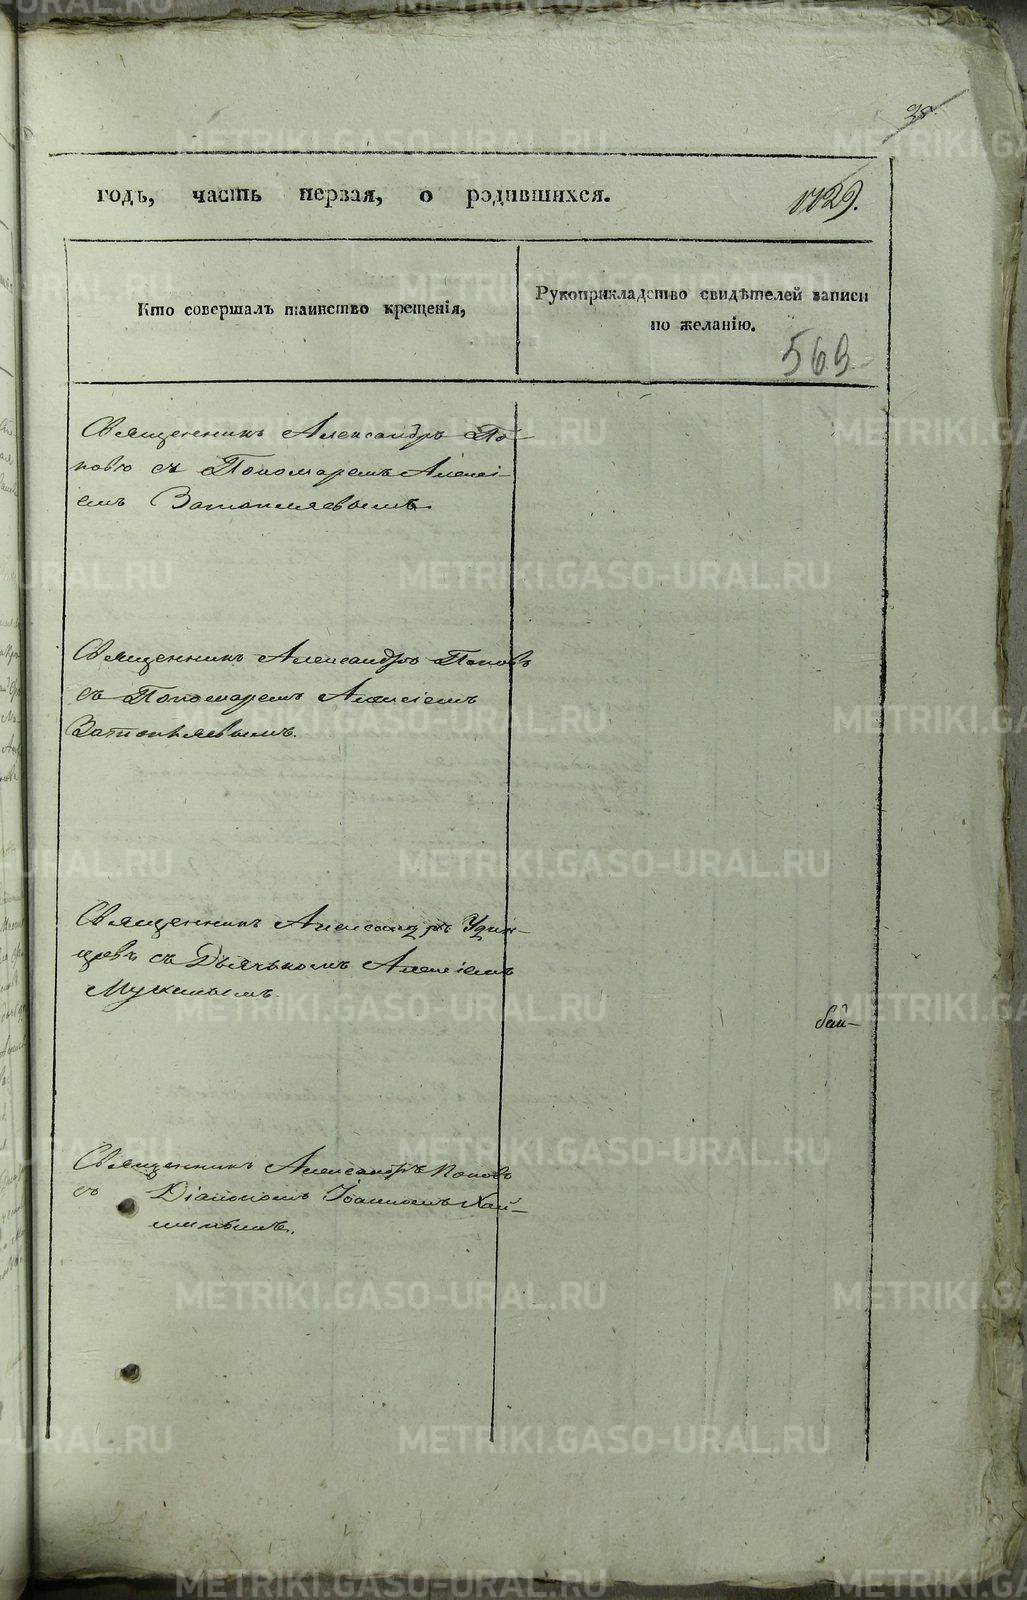 годъ, часть первая, о родившихся.
1129.
Кто совершалъ таинство крещенія,
Рукоприкладство свидѣтелей записи
по желанію.
569
Священникъ Александръ По-
повъ съ Пономаремъ Алексі-
емъ
Священникъ Александръ Поповъ
съ Пономаремъ Алексіемъ
Священникъ Александръ Удин-
цевъ съ Дьячкомъ Алексіемъ
Священникъ Александръ Поповъ
съ Діакономъ Іоанномъ Хай-
METRIKI.GASO-URAL.RU